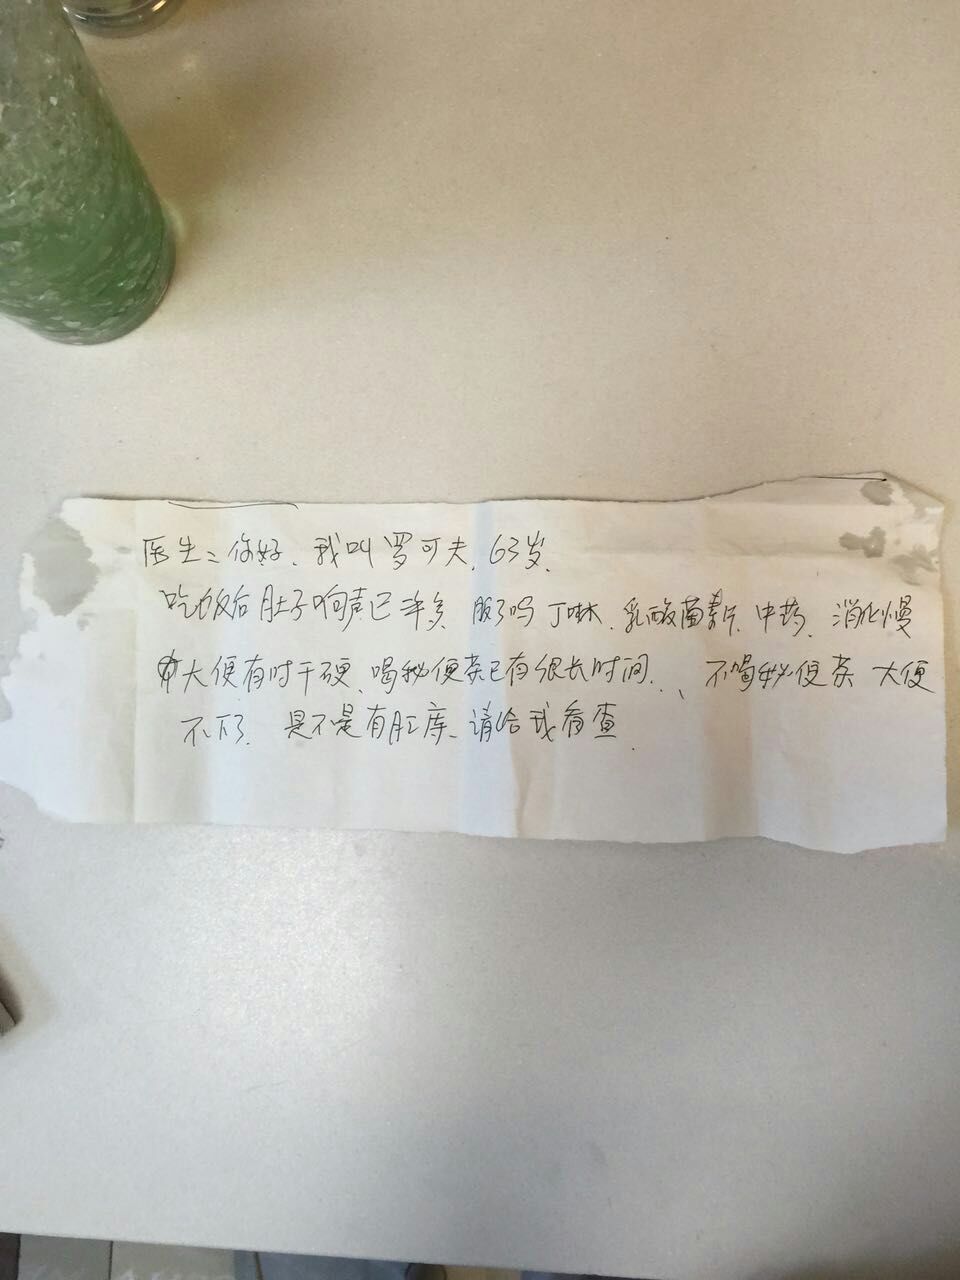 医生：你好、我叫罗可夫，63岁、
吃饭后肚子响声已许多，服了吗丁啉、乳酸菌素片、中药、消化慢
大便有时干硬、喝秘便茶已有很长时间、、不喝秘便茶 大便
不下了、是不是有肛库、请给我看查、